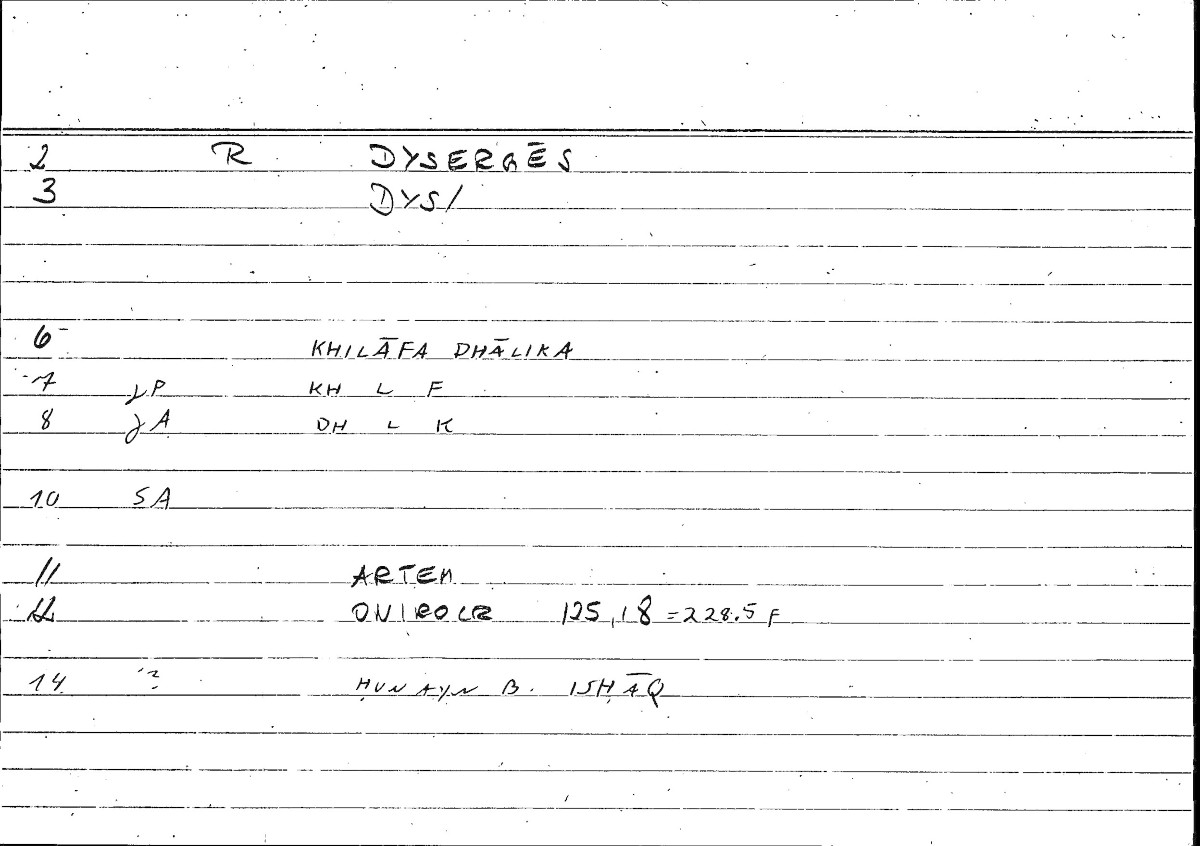 2 R DYSERGĒS
3 DYS/
6 KHILĀFA DHĀLIKA
7 γP KH L F
8 γA DH L K
10 SA
11 ARTEM
12 ONIROCR 125,18 = 228.5 F
14 ? ḤUNAYN B. ISḤĀQ